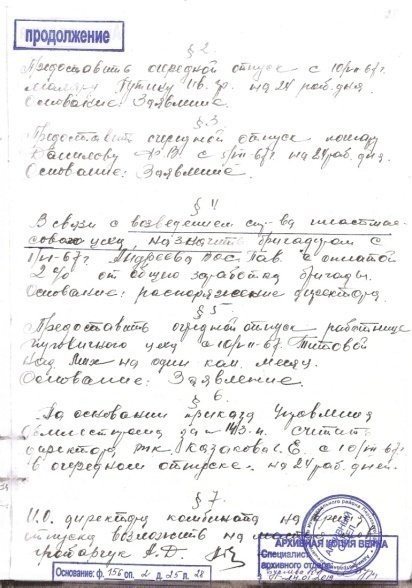 продолжение
§ 2
Предоставить очередной отпуск с 10/VII-67г.
маляру на 24 раб. дня.
Основание: Заявление.
§ 3
Предоставить очередной отпуск
Данилову с /VII-67г. на 24 раб. дня.
Основание: Заявление.
§ 4
В связи с возведением пластмас-
сового цеха, назначить бригадиром с
1/VII-67г. Андреева Вас. Пав. с оплатой
2% от общего заработка бригады.
Основание: распоряжение директора.
§ 5
Предоставить очередной отпуск работнице
пуговичного цеха с 10/VII-67г. Титовой
на один кал. месяц.
Основание: Заявление.
§ 6.
На основании приказа Управления
Облместпрома за № 143-к считать
директора Казакова Е. с 10/VII-67г
в очередном отпуске на 24 раб. дней.
§ 7.
И.О. директора комбината на время
отпуска возложить на
АРХИВНАЯ КОПИЯ ВЕРНА
Специалист
архивного отдела
Основание: ф. 156 оп. 2 д. 25 л. 28